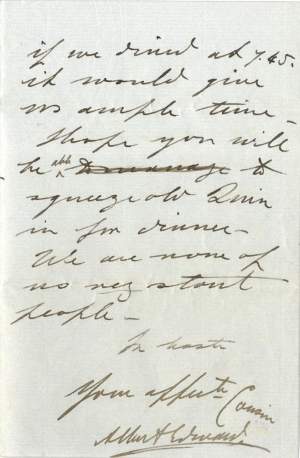 if we dined at 7.45.
it would give
us ample time –
I hope you will
be able to manage to
squeeze old Quin
in for dinner –
We are none of
us very stout
people –
In haste
Your affecte Cousin
Albert Edward